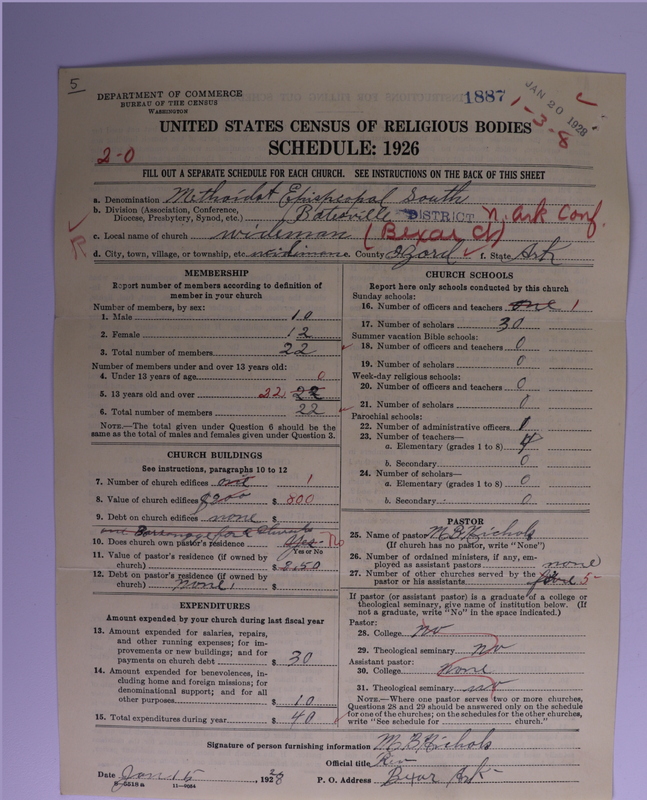 5
DEPARTMENT OF COMMERCE
BUREAU OF THE CENSUS
WASHINGTON
1887
JAN 20 1928
1-3-8
UNITED STATES CENSUS OF RELIGIOUS BODIES
2-0
SCHEDULE: 1926
FILL OUT A SEPARATE SCHEDULE FOR EACH CHURCH. SEE INSTRUCTIONS ON THE BACK OF THIS SHEET
a. Denomination Methodist Episcopal South
b. Division (Association, Conference, Diocese, Presbytery, Synod, etc.) Batesville DISTRICT N. Ark Conf.
c. Local name of church wideman (Bexar Ch)
d. City, town, village, or township, etc. wideman e. County Izord f. State Ark
MEMBERSHIP
Report number of members according to definition of
member in your church
Number of members, by sex:
1. Male 10
2. Female 12
3. Total number of members 22
Number of members under and over 13 years old:
4. Under 13 years of age 0
5. 13 years old and over 22 22
6. Total number of members 22
NOTE.—The total given under Question 6 should be
the same as the total of males and females given under Question 3.
CHURCH BUILDINGS
See instructions, paragraphs 10 to 12
7. Number of church edifices one 1
8. Value of church edifices $800 $ 800
9. Debt on church edifices none $
10. Does church own pastor's residence? Yes No
Yes or No
11. Value of pastor's residence (if owned by
church) $ 2,50
12. Debt on pastor's residence (if owned by
church) none. $
EXPENDITURES
Amount expended by your church during last fiscal year
13. Amount expended for salaries, repairs,
and other running expenses; for im-
provements or new buildings; and for
payments on church debt $ 30
14. Amount expended for benevolences, in-
cluding home and foreign missions; for
denominational support; and for all
other purposes $ 10
15. Total expenditures during year $ 40
CHURCH SCHOOLS
Report here only schools conducted by this church
Sunday schools:
16. Number of officers and teachers one 1
17. Number of scholars 30
Summer vacation Bible schools:
18. Number of officers and teachers 0
19. Number of scholars 0
Week-day religious schools:
20. Number of officers and teachers 0
21. Number of scholars 0
Parochial schools:
22. Number of administrative officers
23. Number of teachers—
a. Elementary (grades 1 to 8)
b. Secondary 0
24. Number of scholars—
a. Elementary (grades 1 to 8) 0
b. Secondary 0
PASTOR
25. Name of pastor M. B. Nichols
(If church has no pastor, write "None")
26. Number of ordained ministers, if any, em-
ployed as assistant pastors none
27. Number of other churches served by the
pastor or his assistants 5
If pastor (or assistant pastor) is a graduate of a college or
theological seminary, give name of institution below. (If
not a graduate, write "No" in the space indicated.)
Pastor:
28. College No
29. Theological seminary No
Assistant pastor:
30. College None
31. Theological seminary no
NOTE.—Where one pastor serves two or more churches,
Questions 28 and 29 should be answered only on the schedule
for one of the churches; on the schedules for the other churches,
write "See schedule for church."
Signature of person furnishing information M. B. Nichols
Official title Rev
Date Jan 15, 1928 P. O. Address Bexar Ark
8-5518a 11-9064